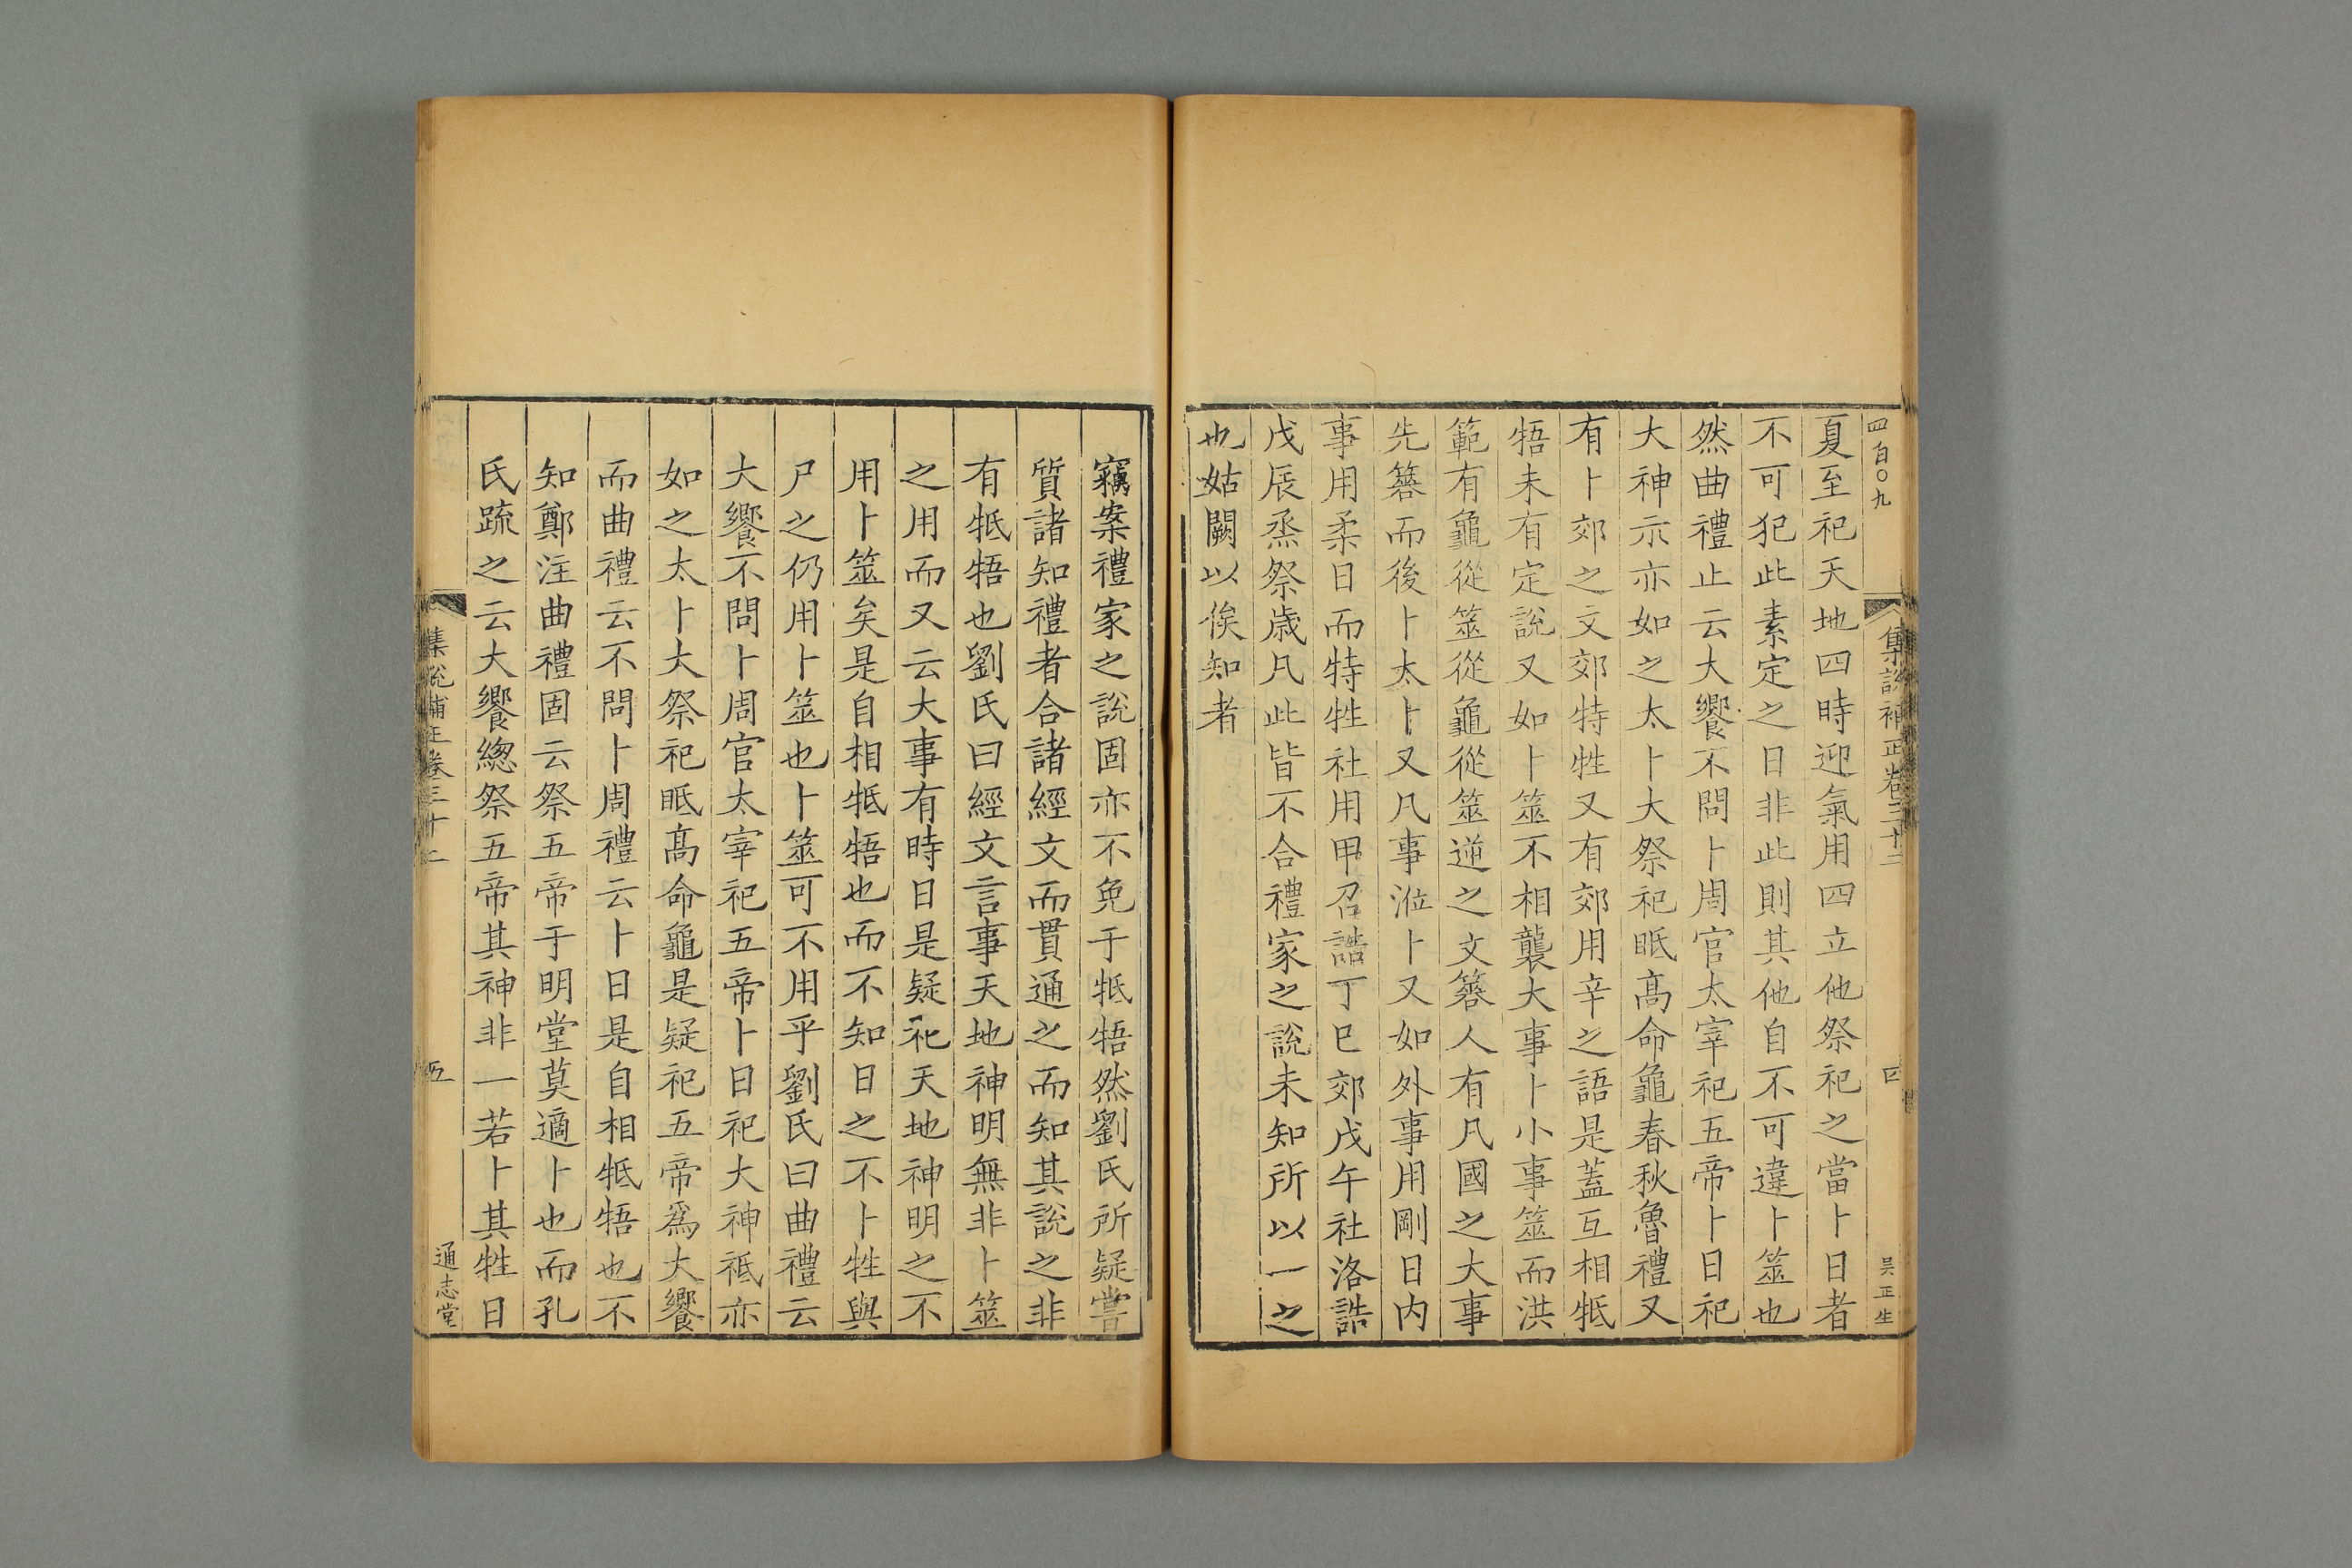 四百〇九
集說補正卷三十二
四
吴正生
夏至祀天地四時迎氣用四立他祭祀之當卜日者
不可犯此素定之日非此則其他自不可違卜筮也
然曲禮止云大饗不問卜周官太宰祀五帝卜日祀
大神示亦如之太卜大祭祀眡高命龜春秋魯禮又
有卜郊之文郊特牲又有郊用辛之語是蓋互相牴
牾未有定說又如卜筮不相襲大事卜小事筮而洪
範有龜從筮從龜從筮逆之文簭人有凡國之大事
先簭而後卜太卜又凡事涖卜又如外事用剛日内
事用柔日而特牲社用甲召誥丁巳郊戊午社洛誥
戊辰烝祭歲凡此皆不合禮家之說未知所以一之
也姑闕以俟知者
竊案禮家之說固亦不免于牴牾然劉氏所疑嘗
質諸知禮者合諸經文而貫通之而知其說之非
有牴牾也劉氏曰經文言事天地神明無非卜筮
之用而又云大事有時日是疑祀天地神明之不
用卜筮矣是自相牴牾也而不知日之不卜牲與
尸之仍用卜筮也卜筮可不用乎劉氏曰曲禮云
大饗不問卜周官太宰祀五帝卜日祀大神祗亦
如之太卜大祭祀眡高命龜是疑祀五帝爲大饗
而曲禮云不問卜周禮云卜日是自相牴牾也不
知鄭注曲禮固云祭五帝于明堂莫適卜也而孔
氏疏之云大饗總祭五帝其神非一若卜其牲日
集說補正卷三十二
五
通志堂